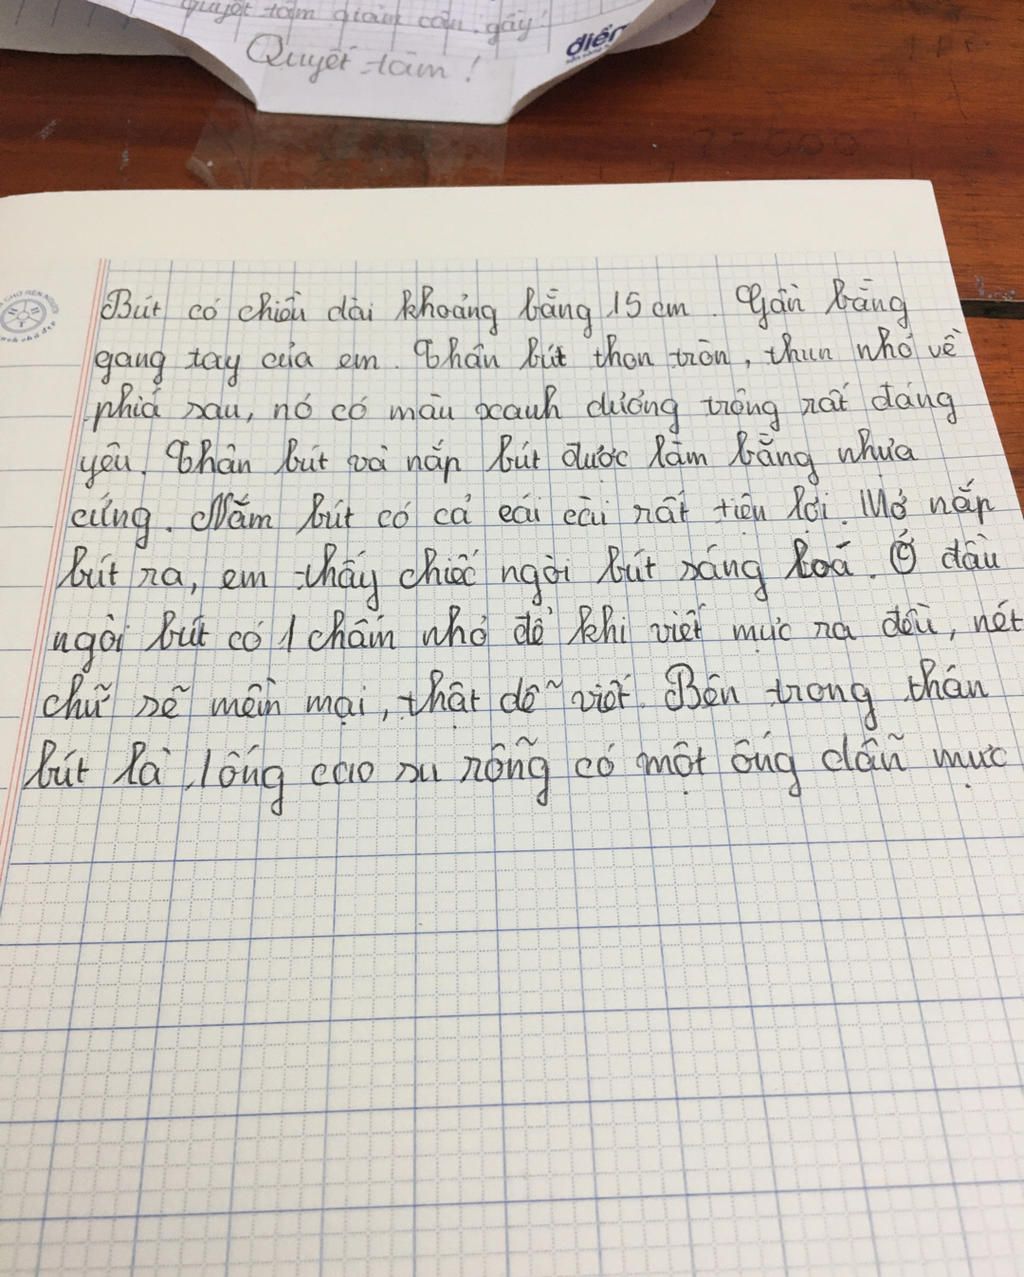 quyết tâm giảm cân. gây!
Quyết tâm!
điểm
Bút có chiều dài khoảng bằng 15 cm. Gần bằng
gang tay của em. Thân bút thon tròn, thun nhỏ về
phiá sau, nó có màu xanh dương trông rất đáng
yêu. Thân bút và nắp bút được làm bằng nhựa
cứng. Nắm bút có cả cái cài rất tiện lợi. Mở nắp
bút ra, em thấy chiếc ngòi bút sáng loá. Ở đầu
ngòi bút có 1 chấm nhỏ để khi viết mực ra đều, nét
chữ sẽ mềm mại, thật dễ viết. Bên trong thân
bút là 1 ống cao su rỗng có một ống dẫn mực